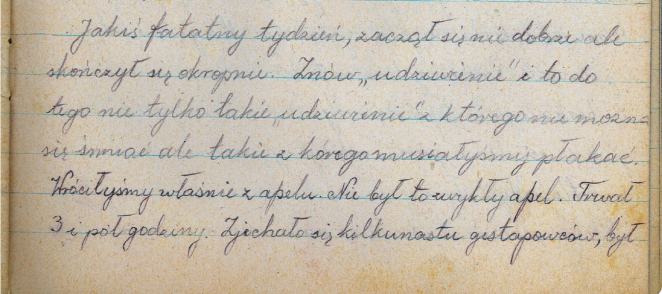 Jakiś fatalny tydzień, zaczął się nie dobrze ale
skończył się okropnie. Znów „udziwienie” i to do
tego nie tylko takie „udziwienie” z którego nie można
się śmiać ale takie z kórego musiałyśmy płakać.
Wróciłyśmy właśnie z apelu. Nie był to zwykły apel. Trwał
3 i pół godziny. Zjechało się kilkunastu gestapowców, był